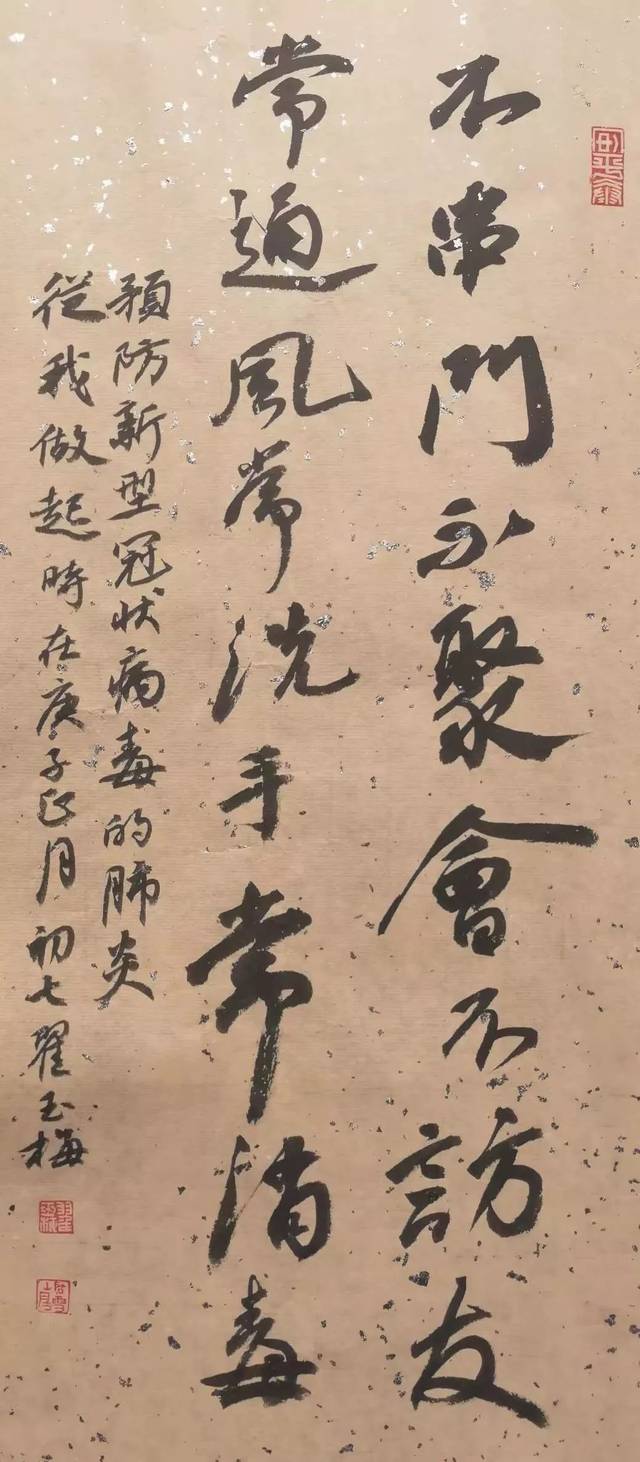 不串門不聚會不訪友
常通風常洗手常消毒
預防新型冠狀病毒的肺炎
從我做起時在庚子正月初七翟玉梅